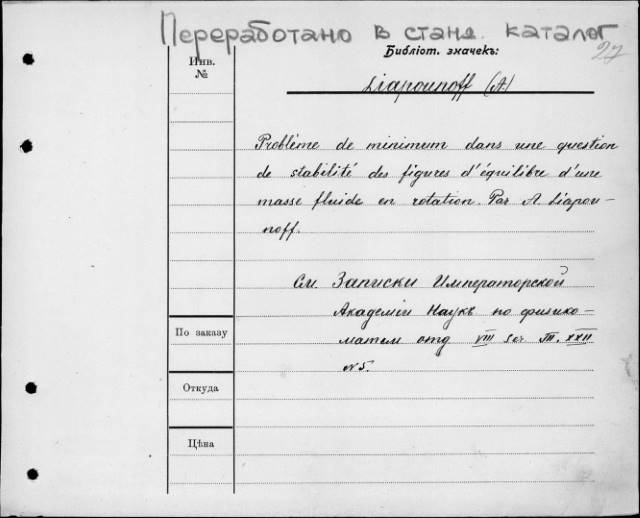 Переработано в станд. каталог
27
Библіот. значекъ:
Инв.
№
Liapounoff (A)
Problème de minimum dans une question
de stabilité des figures d'équilibre d'une
masse fluide en rotation. Par A. Liapou-
noff.
См. Записки Императорской
Академіи Наукъ по физико-
матем отд VIII Ser Т. XXII
№5.
По заказу
Откуда
Цѣна